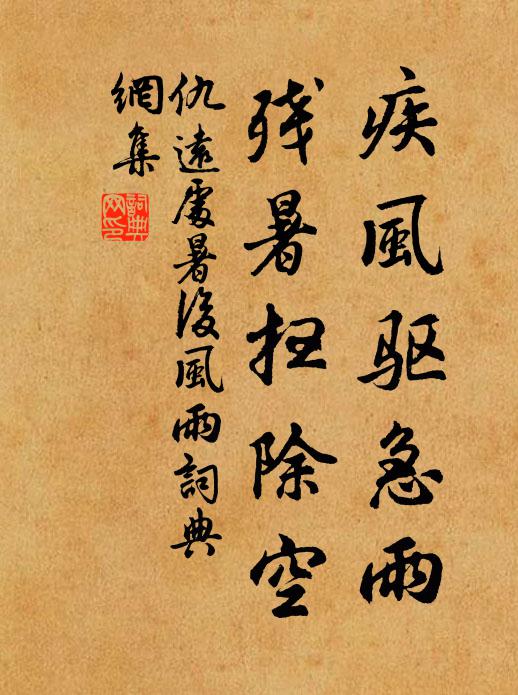 疾風驱急雨
残暑扫除空
仇遠處暑後風雨詞典
網集
詞典網印